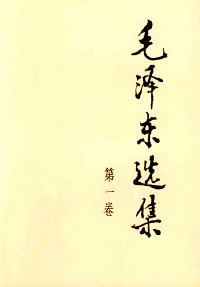 毛泽东选集
第一卷